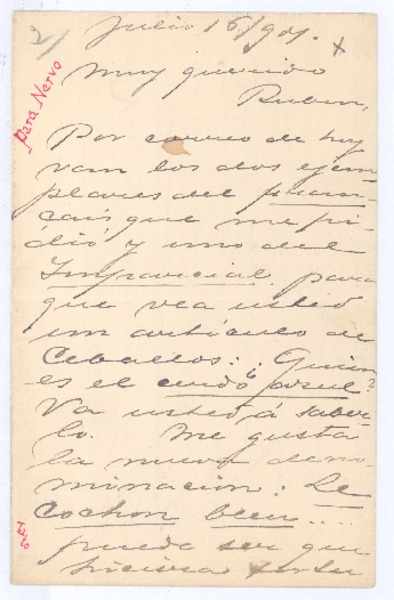 2/ Julio 15/901. x
Para Nervo
Muy querido
Ruben,
Por correo de hoy
van los dos ejem
plares del
que me pi-
dió y uno del
Imparcial para
que vea usted
un artículo de
Ceballos: ¿Quien
es el cerdo azul?
Va usted á saber-
lo. Me gusta
la nueva deno-
minacion: Le
Cochon bleu....
puede ser que
hiciera